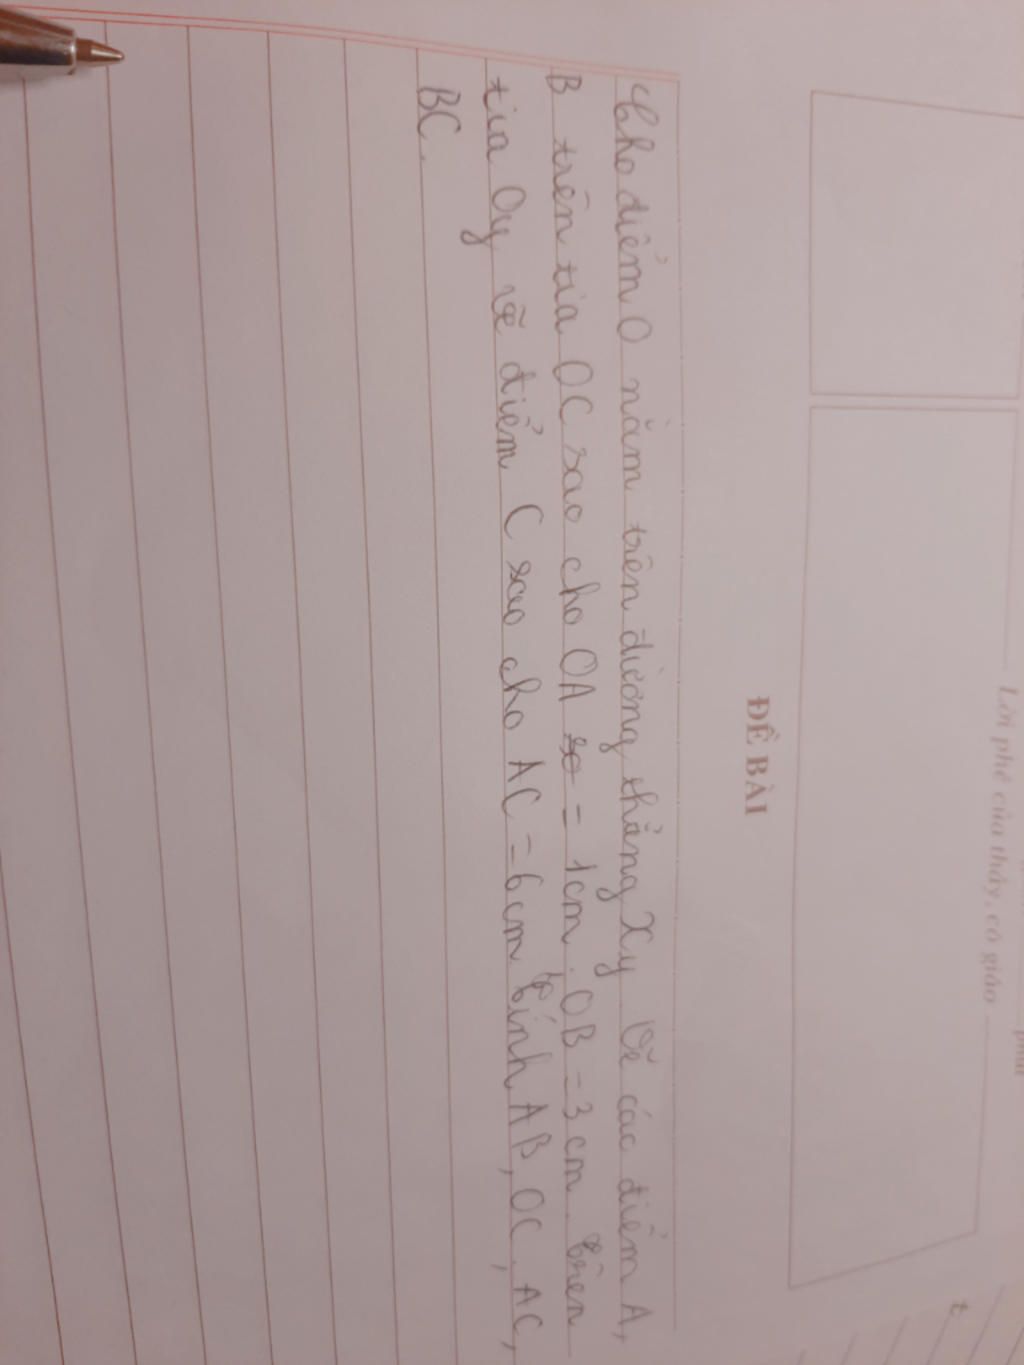 Lời phê của thầy, cô giáo
ĐỀ BÀI
Cho điểm O nằm trên đường thẳng xy Vẽ các điểm A,
B trên tia OC sao cho OA = 1cm. OB = 3cm. Trên
tia Oy vẽ điểm C sao cho AC = 6cm Tính AB, OC, AC,
BC.